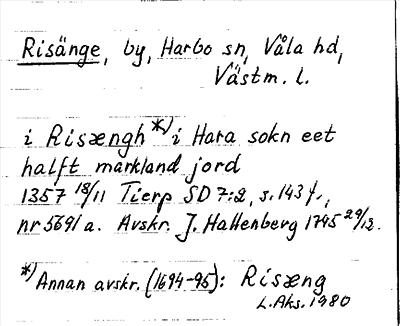 Risänge, by, Harbo sn, Våla hd,
Västm. l.
i Risængh *) i Hara sokn eet
halft markland jord
1357 18/11 Tierp SD 7:2, s. 143 f.,
nr 5691 a. Avskr. J. Hallenberg 1795 29/12.
*) Annan avskr. (1694-95): Risæng
L. Aks. 1980